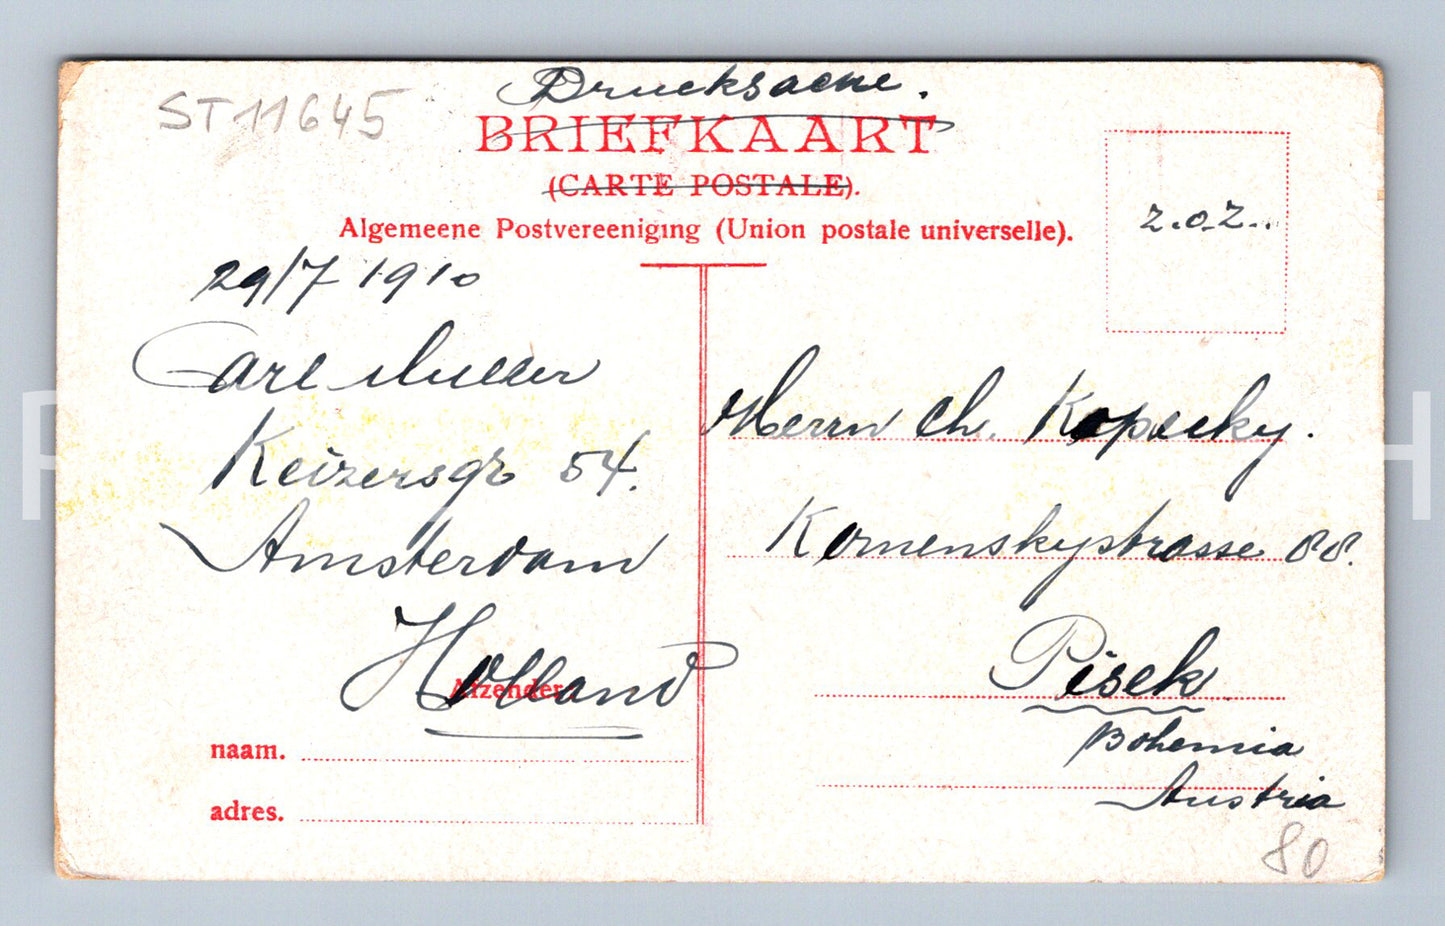 ST11645
Drucksache.
BRIEFKAART
(CARTE POSTALE).
Algemeene Postvereeniging (Union postale universelle).
z.o.z..
29/7 1910
Carl Muller
Keizersgr 54.
Amsterdam
Holland
Afzender:
naam.
adres.
Herrn Ch. Kopecky.
Komenskystrasse 88.
Pisek
Bohemia
Austria
80